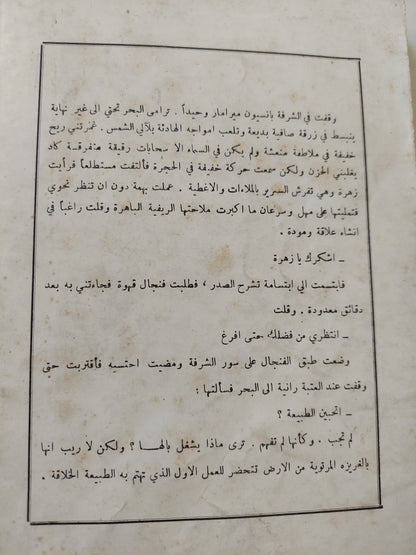 وقفت في الشرفة بانسيون ميرامار وحيداً . ترامى البحر تحتي الى غير نهاية
ينبسط في زرقة صافية بديعة وتلعب امواجه الهادئة بلآلي الشمس . غمرتني ريح
خفيفة في ملاطفة منعشة ولم يكن في السماء الا سحابات رقيقة متفرقة كاد
يغلبني الحزن ولكن سمعت حركة خفيفة في الحجرة فألتفت مستطلعاً فرأيت
زهرة وهي تفرش السرير بالملاءات والاغطية . عملت بهمة دون ان تنظر نحوي
فتمليتها على مهل وسرعان ما اكبرت ملاحتها الريفية الباهرة وقلت راغباً في
انشاء علاقة ومودة .
ـ اشكرك يا زهرة
فابتسمت الي ابتسامة تشرح الصدر ، فطلبت فنجال قهوة فجاءتني به بعد
دقائق معدودة . وقلت
ـ انتظري من فضلك حتى افرغ
وضعت طبق الفنجال على سور الشرفة ومضيت احتسيه فأقتربت حتى
وقفت عند العتبة رانية الى البحر فسألتها :
ـ اتحبين الطبيعة ؟
لم تجب . وكأنها لم تفهم . ترى ماذا يشغل بالها ؟ ولكن لا ريب انها
بالغريزه المرتوية من الارض تتحضر للعمل الاول الذي تهتم به الطبيعة الخلاقة .